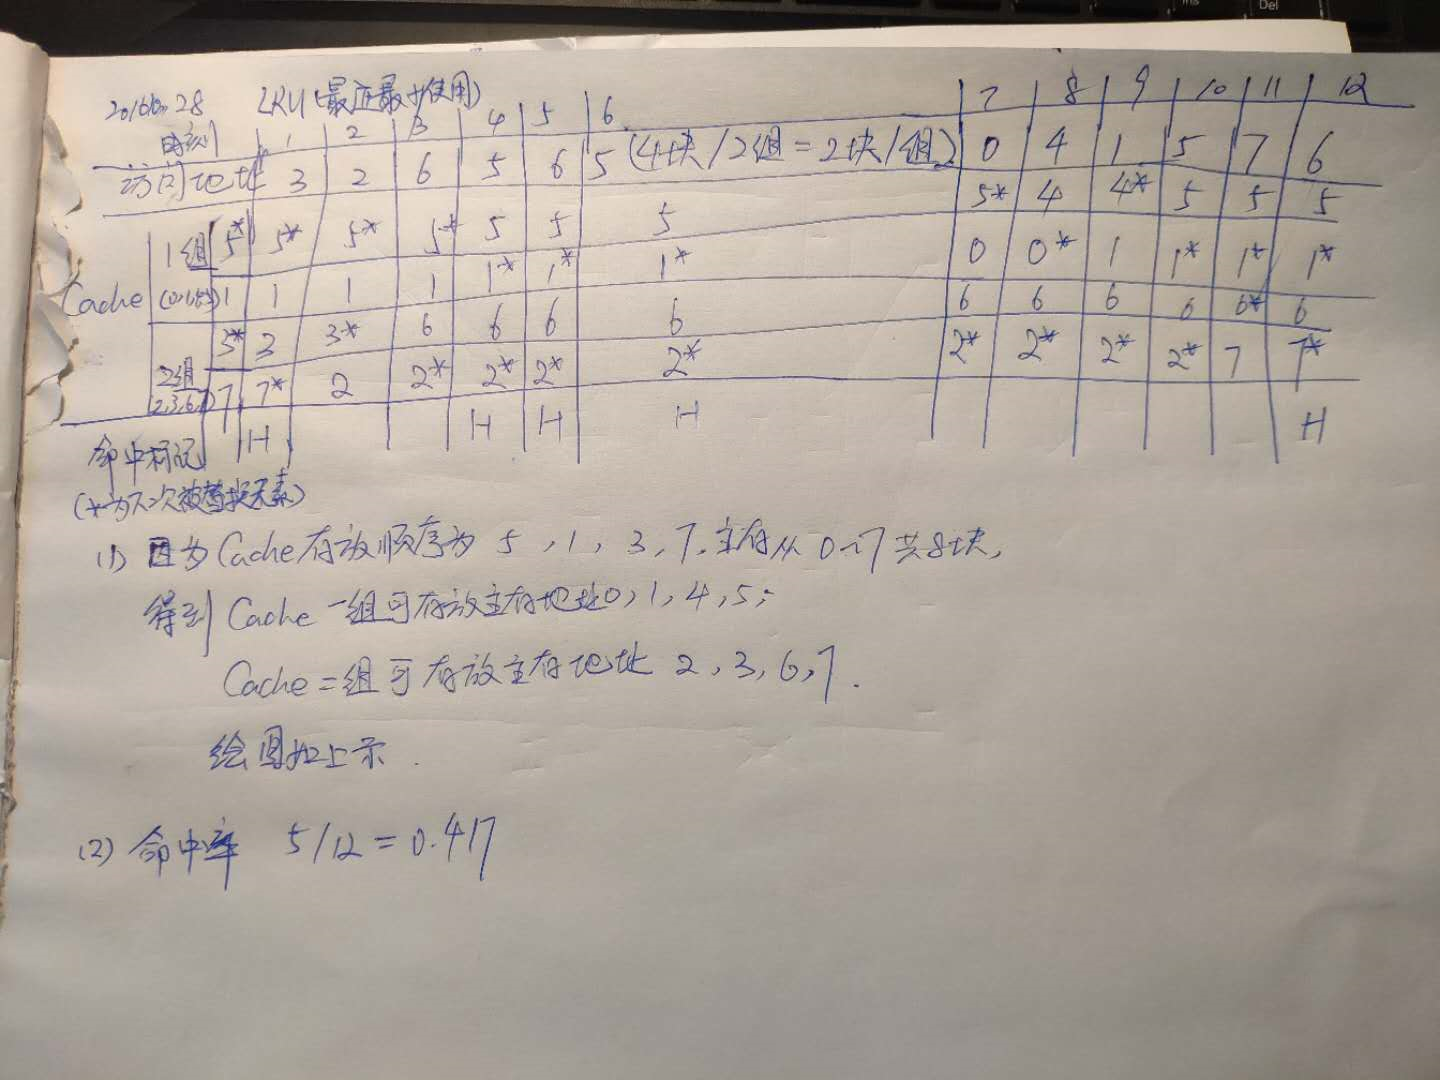 LRU(最近最少使用)
7 8 9 10 11 12
时刻 1 2 3 4 5 6
访问地址 3 2 6 5 6 5 (4块/2组=2块/组) 0 4 1 5 7 6
1组 5* 5* 5* 5* 5 5 5 5* 4 4* 5 5 5
Cache 1 1 1 1 1* 1* 1* 0 0* 1 1* 1* 1*
3* 3 3* 6 6 6 6 6 6 6 6 6* 6
2组 7 7* 2 2* 2* 2* 2* 2* 2* 2* 2* 7 7*
命中标记 H H H H H
(*为下次被替换元素)
(1) 因为Cache存放顺序为 5,1,3,7,主存从0~7共8块,
得到Cache一组可存放主存地址0,1,4,5;
Cache二组可存放主存地址 2,3,6,7.
绘图如上示.
(2) 命中率 5/12=0.417
Del